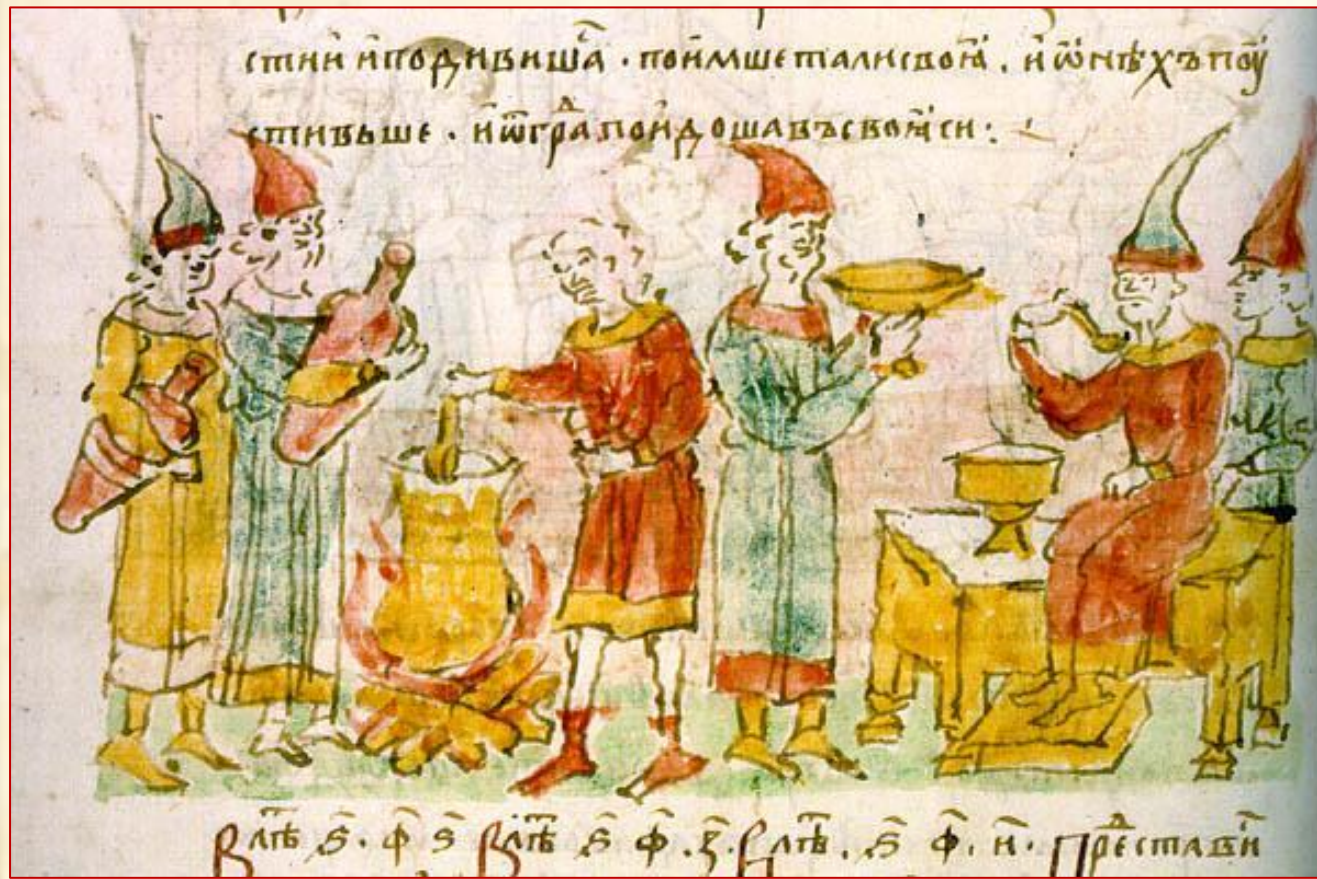 стии и҆ подивишаⷭ҇ . пои҆мше тали своꙗ҆ . и҆ ѡ҆нѣхъ поу
стивьше . и҆ ѿ граⷣ пои҆доша въ своꙗ҆си :
В лѣⷮ ѕ҃ . ф҃ ѕ҃ В лѣⷮ ѕ҃ ф҃ . з҃ . В лѣⷮ . ѕ҃ ф҃ . и҃ . Преⷣстави